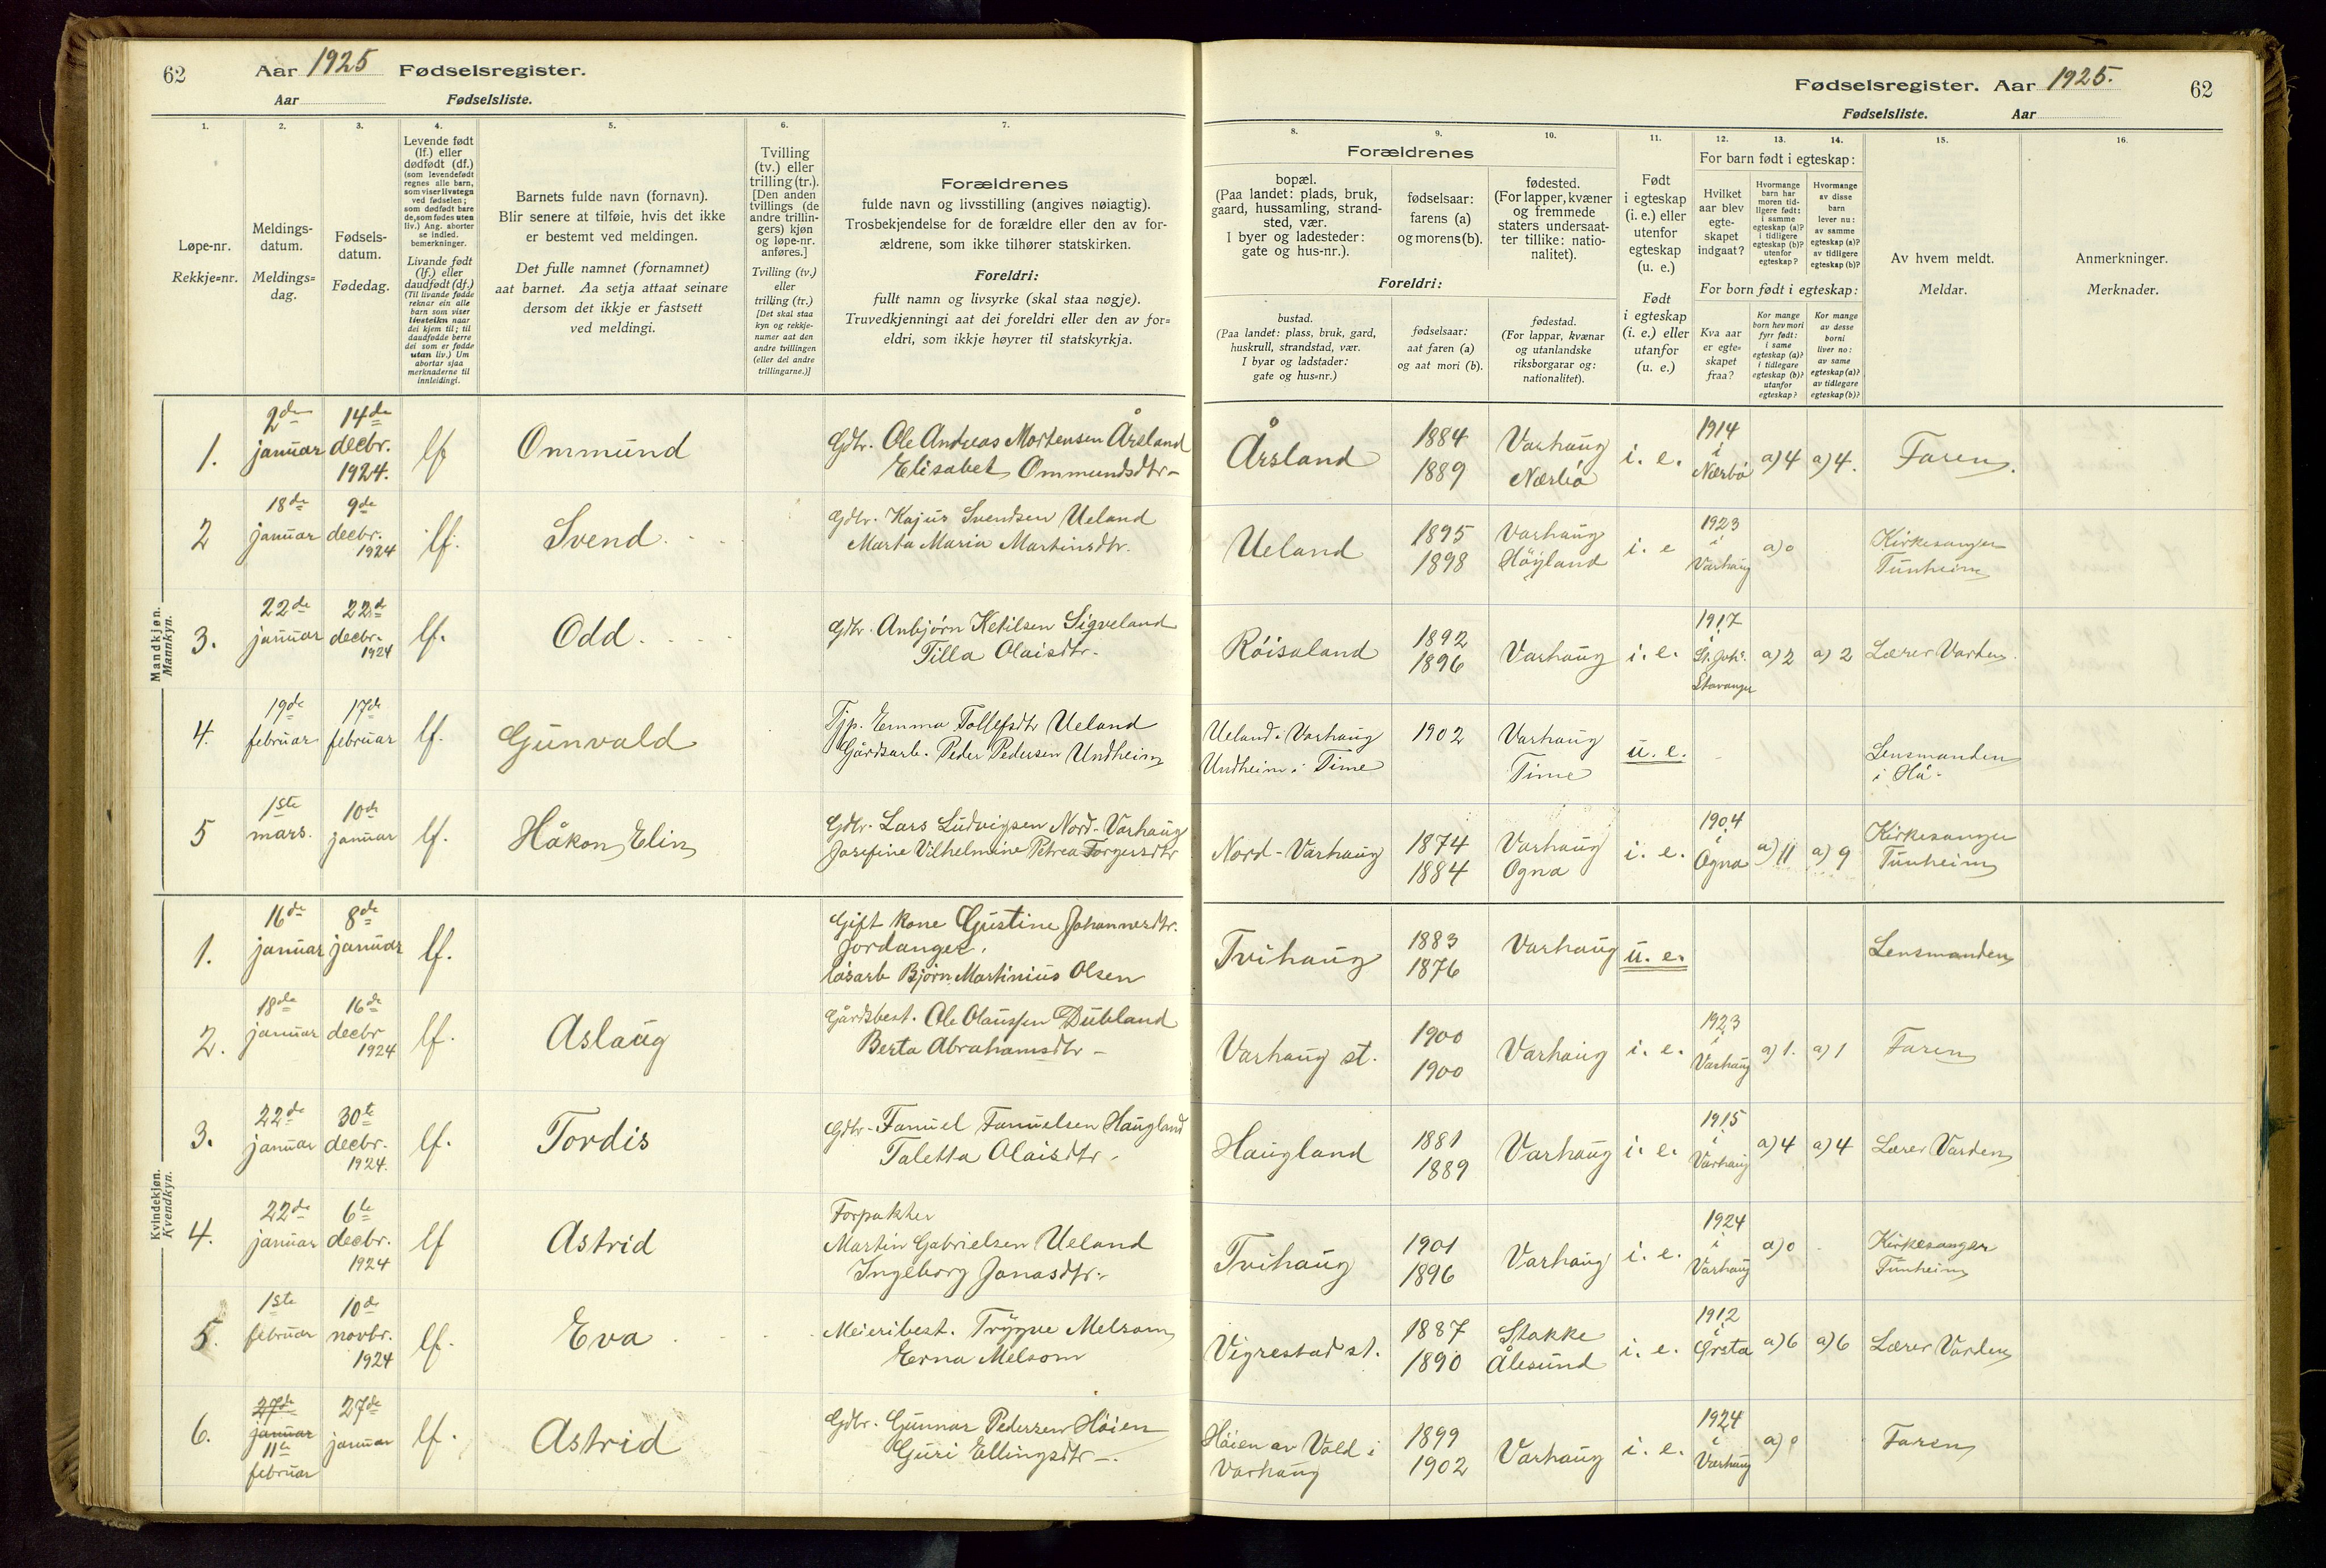 62 Aar 1925 Fødselsregister.
Aar Fødselsliste.
Fødselsregister. Aar 1925. 62
Fødselsliste. Aar
1. 2. 3. 4. 5. 6. 7. 8. 9. 10. 11. 12. 13. 14. 15. 16.
Løpe-nr.
Rekkje=nr.
Meldings-
datum.
Meldings=
dag.
Fødsels-
datum.
Fødedag.
Levende født
(lf.) eller
dødfødt (df.)
(som levendefødt
regnes alle barn,
som viser livstegn
ved fødselen;
som dødfødt bare
de, som fødes uten
liv.) Ang. aborter
se indled.
bemerkninger.
Livande født
(lf.) eller
daudfødt (df.)
(Til livande fødde
reknar ein alle
barn som viser
livsteikn naar
dei kjem til; til
daudfødde berre
dei som er fødde
utan liv.) Um
abortar sjaa
merknaderne til
innleidingi.
Barnets fulde navn (fornavn).
Blir senere at tilføie, hvis det ikke
er bestemt ved meldingen.
Det fulle namnet (fornamnet)
aat barnet. Aa setja attaat seinare
dersom det ikkje er fastsett
ved meldingi.
Tvilling
(tv.) eller
trilling (tr.).
[Den anden
tvillings (de
andre trillin-
gers) kjøn
og løpe-nr.
anføres.]
Tvilling (tv.)
eller
trilling (tr.)
[Det skal staa
kyn og rekkje-
numer aat den
andre tvillingen
(eller dei andre
trillingarne.)]
Forældrenes
fulde navn og livsstilling (angives nøiagtig).
Trosbekjendelse for de forældre eller den av for-
ældrene, som ikke tilhører statskirken.
Foreldri:
fullt namn og livsyrke (skal staa nøgje).
Truvedkjenningi aat dei foreldri eller den av for=
eldri, som ikkje høyrer til statskyrkja.
Forældrenes
bopæl.
(Paa landet: plads, bruk,
gaard, hussamling, strand-
sted, vær.
I byer og ladesteder:
gate og hus-nr.).
fødselsaar:
farens (a)
og morens (b).
fødested.
(For lapper, kvæner
og fremmede
staters undersaat-
ter tillike: natio-
nalitet).
Foreldri:
bustad.
(Paa landet: plass, bruk, gard,
huskrull, strandstad, vær.
I byar og ladstader:
gate og hus=nr.)
fødselsaar:
aat faren (a)
og aat mori (b).
fødestad.
(For lappar, kvænar
og utanlandske
riksborgarar og:
nationalitet).
Født
i egteskap
(i. e.) eller
utenfor
egteskap
(u. e.)
Født
i egteskap
(i. e.) eller
utanfor
(u. e.)
For barn født i egteskap:
Hvilket
aar blev
egte-
skapet
indgaat?
Hvormange
barn har
moren tid-
ligere født:
i samme
egteskap (a)?
i tidligere
egteskap (b)?
utenfor
egteskap?
Hvormange
av disse
barn
lever nu:
av samme
egteskap (a)?
av tidligere
egteskap (b)?
For born født i egteskap:
Kva aar
er egte=
skapet
fraa?
Kor mange
born hev mori
fyrr født:
i same
egteskap (a)?
i tidlegare
egteskap (b)?
utanfor
egteskap?
Kor mange
av desse
borni
liver no:
av same
egteskap (a)?
av tidlegare
egteskap (b)?
Av hvem meldt.
Meldar.
Anmerkninger.
Merknader.
Mandkjøn.
Mannkyn.
1. 2den januar 14de decbr. 1924. lf. Ommund
Gdbr. Ole Andreas Mortensen Årsland
Elisabet Ommundsdtr.
Årsland 1884 1889 Varhaug Nærbø i. e. 1914 i Nærbø a) 4 a) 4. Faren.
2 18de januar 9de decbr. 1924 lf. Svend
Gdbr. Kajus Svendsen Ueland
Marta Maria Martinsdtr.
Ueland 1895 1898 Varhaug Höyland i. e 1923 i Varhaug a) 0 Kirkesanger Tunheim
3. 22de januar 22de decbr. 1924 lf. Odd
Gdbr. Anbjørn Ketilsen Sigveland
Tilla Olaisdtr.
Röisaland 1892 1896 Varhaug i. e. 1917 i St. Joh's. Stavanger a) 2 a) 2 Lærer Varden
4. 19de februar 17de februar lf. Gunvald
Tjp. Emma Tollefsdtr Ueland
Gårdsarb. Peder Pedersen Undheim
Ueland i Varhaug Undheim i Time 1902 Varhaug Time u. e. Lensmanden i Hå.
5 1ste mars. 10de januar lf. Håkon Elin
Gdbr. Lars Ludvigsen Nord-Varhaug
Josefine Vilhelmine Petrea Torgersdtr
Nord-Varhaug 1874 1884 Varhaug Ogna i. e. 1904 i Ogna a) 11 a) 9 Kirkesanger Tunheim
Kvindekjøn.
Kvendkyn.
1. 16de januar 8de januar lf.
Gift kone Gustine Johannesdtr.
Jordanger.
løsarb Bjørn Martinius Olsen
Tvihaug 1883 1876 Varhaug u. e. Lensmanden
2. 18de januar 16de decbr 1924 lf. Aslaug
Gårdsbest. Ole Olaussen Dubland
Berta Abrahamsdtr
Varhaug st. 1900 1900 Varhaug i. e. 1923 i Varhaug a) 1. a) 1 Faren
3. 22de januar 30te decbr. 1924. lf. Tordis
Gdbr. Samuel Samuelsen Haugland
Taletta Olaisdtr.
Haugland 1881 1889 Varhaug i. e. 1915 i Varhaug a) 4 a) 4 Lærer Varden
4. 22de januar 6te decbr. 1924 lf Astrid
Forpakter
Martin Gabrielsen Ueland
Ingeborg Jonasdtr.
Tvihaug 1901 1896 Varhaug i. e. 1924 i Varhaug a) 0 Kirkesanger Tunheim
5. 1ste februar 10de novbr. 1924 lf. Eva
Meieribest. Trygve Melsom
Erna Melsom
Vigrestad st. 1887 1890 Stokke Ålesund i. e. 1912 i Ørsta a) 6 a) 6 Lærer Varden
6. 27de januar 11te februar 27de januar lf. Astrid
Gdbr. Gunnar Pedersen Höien
Guri Ellingsdtr.
Höien av Vold i Varhaug 1899 1902 Varhaug i. e. 1924 i Varhaug a) 0 Faren